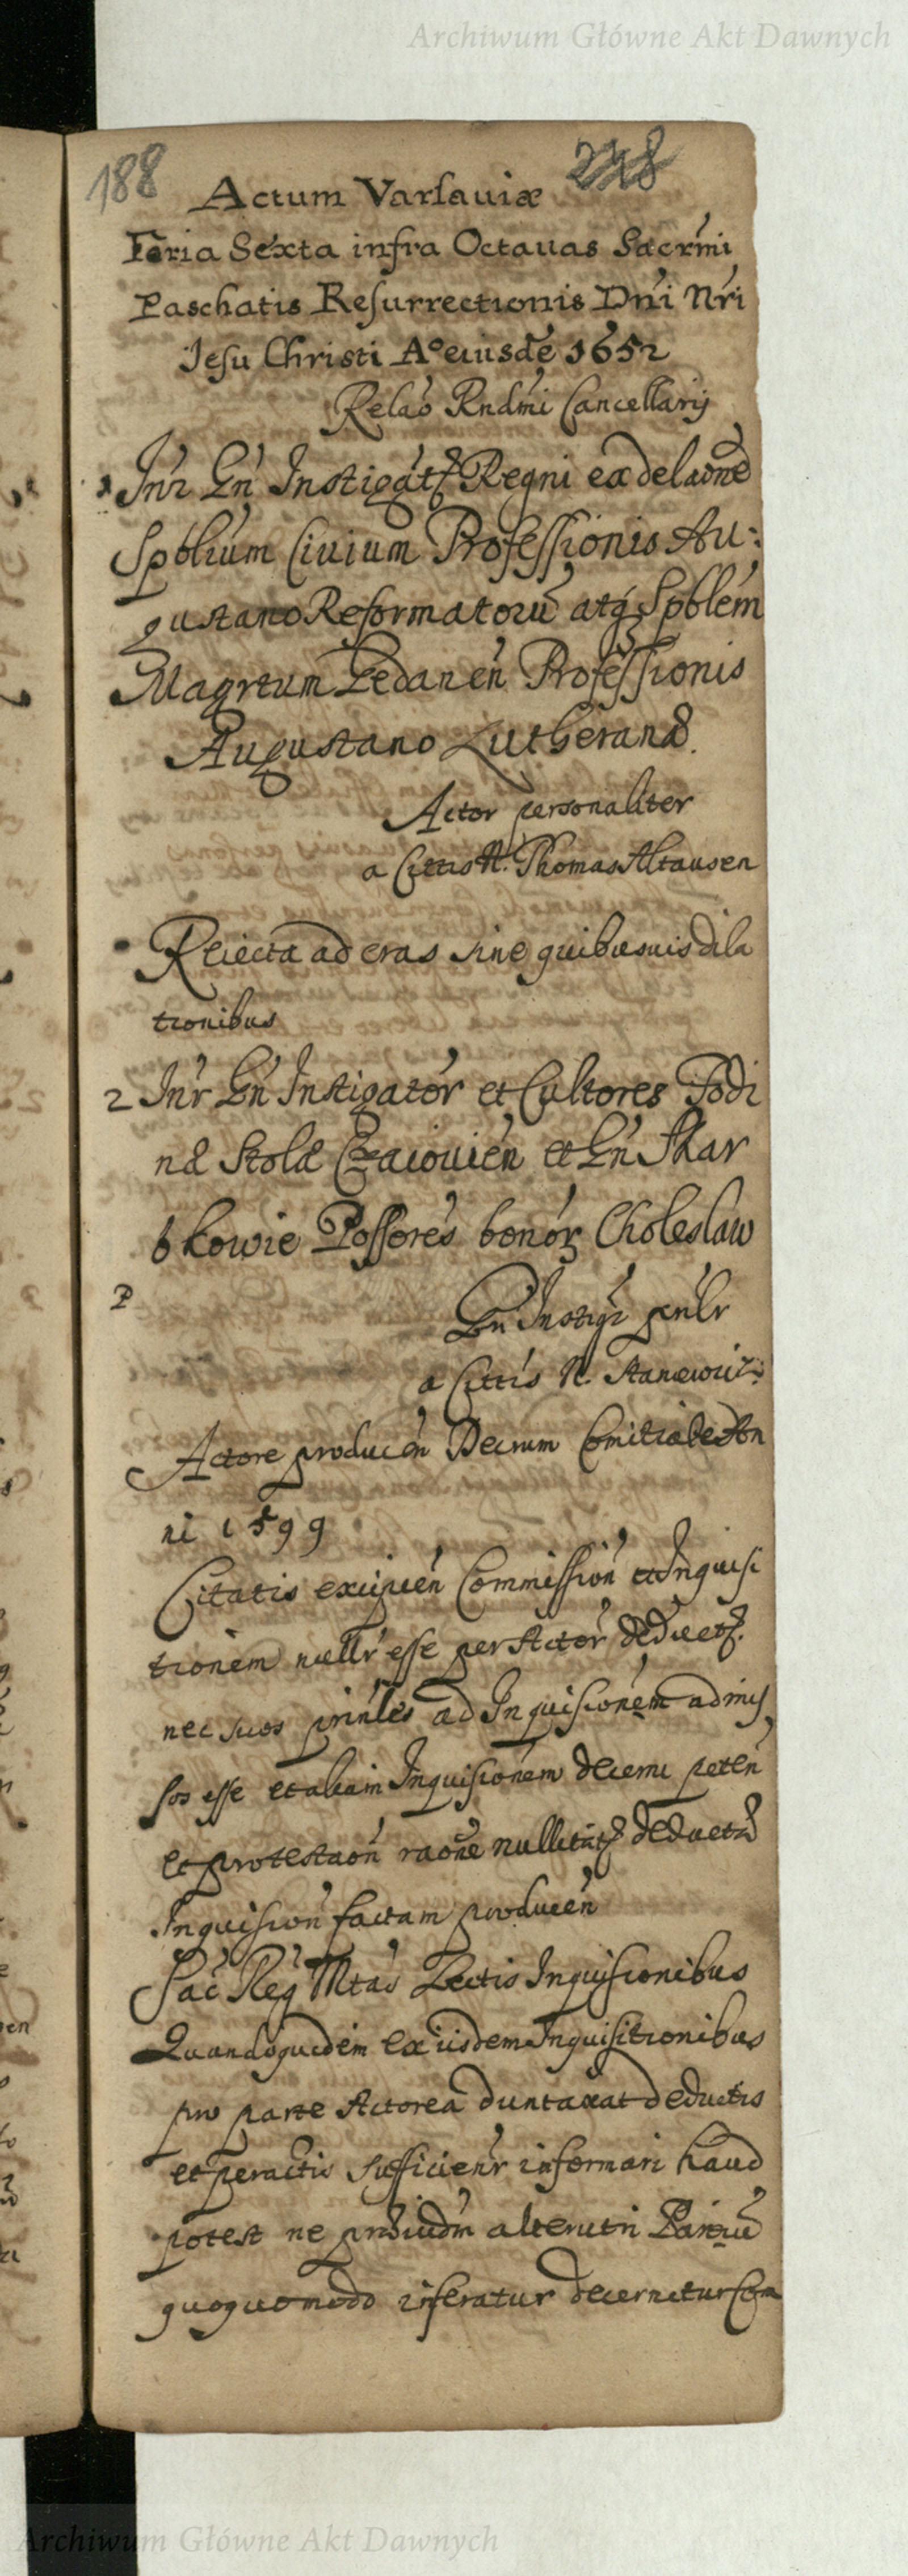 Archiwum Główne Akt Dawnych
188 248
Actum Varsauiæ
Feria Sexta infra Octauas Sacrmi
Paschatis Resurrectionis Dni Nri
Jesu Christi Ao eiusdē 1652
Relao Rndmi Cancellarij
1 Intr Gn Instigat Regni ex delaone
Spblium Ciuium Professionis Au:
gustano Reformatorū atq Spblem
Magrtum Gedanen Professionis
Augustano Lutheranæ.
Actor personaliter
a Cittis N. Thomas Altausen
Reiecta ad cras sine quibusuis dila
tionibus
2 Intr Gn Instigator et Cultores Fodi
næ Stolæ Czaiouien et Gn Skar
bkowie Possores bonor Choleslaw
P
Gn Instigr pnlr
a Cittis N. Staniewicz
Actore producen Decrum Comitiale An
ni 1599
Citatis excipien Commission et Inquisi
tionem nullr esse per Actor deduct
nec suos prinles ad Inquisionem admis
sos esse et aliam Inquisionem decerni peten
et protestaon raone nullitat deductæ
Inquision factam producen
Sac Reg Mtas Lectis Inquisionibus
Quandoquidem ex iisdem Inquisitionibus
pro parte Actorea duntaxat deductis
et peractis sufficienr informari haud
potest ne prōiudm alterutri Partiū
quoquomodo inferatur decernetur Com
Archiwum Główne Akt Dawnych